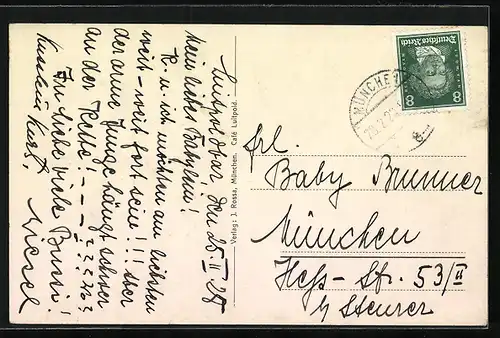 Luitpoldbar, den 25. II 28
Mein liebes Babylein!
R. u. ich möchten am liebsten
weit-weit fort sein!!! der
der arme Junge hängt schwer
an der Kette! – – –
In Liebe viele Bussi!
Liesel
Verlag: J. Rossa, München. Café Luitpold.
Deutsches Reich
8 8
MÜNCHEN
Frl.
Baby Brunner
München
Heß-Str. 53/II
b/ Steurer